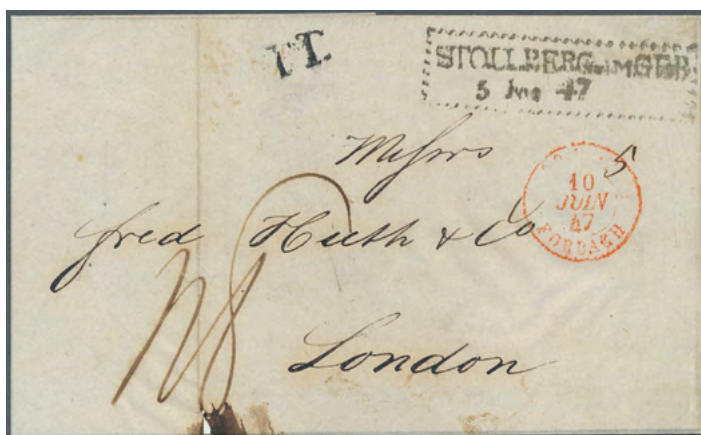 T.T.
STOLLBERG IM GEB
5 Jun 47
Messrs
5
10
JUIN
47
FORBACH
fred Huth & Co
London